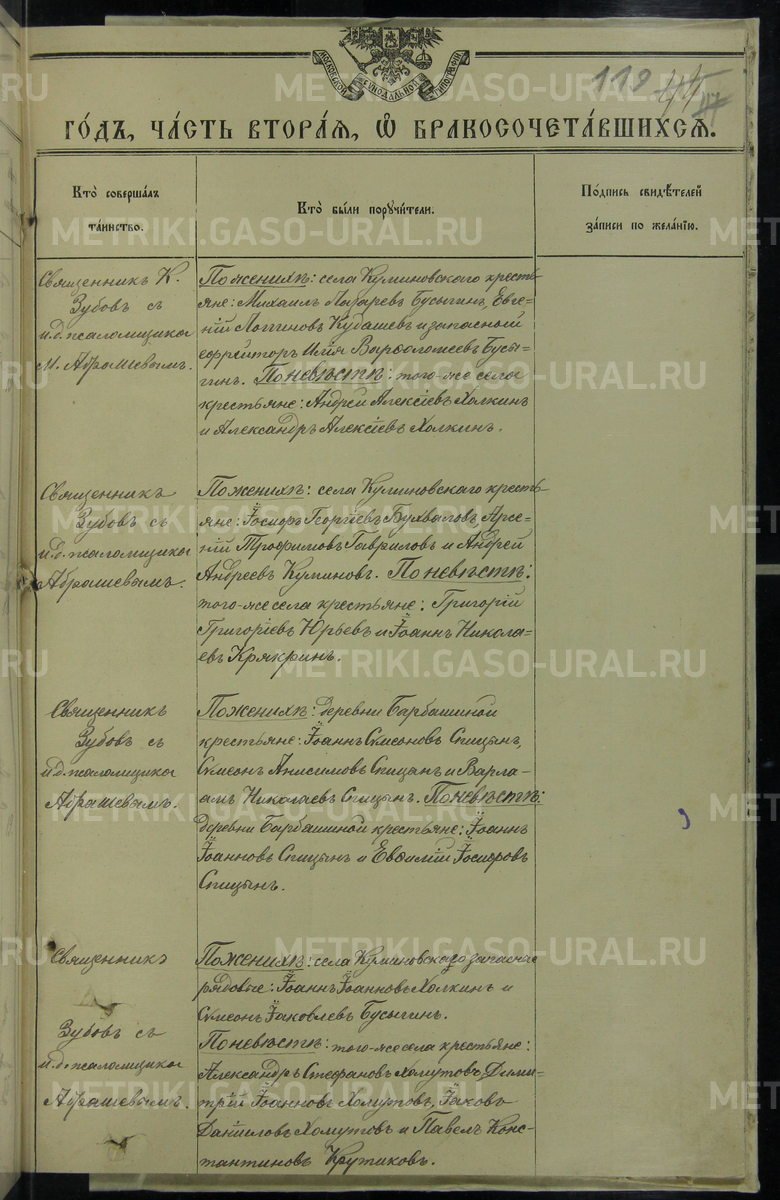 МОСКОВСКОЙ СѴНОДАЛЬНОЙ ТИПОГРАФІИ
119
47
ГО́ДЪ, ЧА́СТЬ ВТОРА́Я, Ѽ БРАКОСОЧЕТА́ВШИХСЯ.
Кто̀ соверша́лъ
та́инство.
Кто̀ бы́ли поручи́тели.
По́дпись свидѣ́телей
за́писи по жела́нїю.
Священникъ К.
Зубовъ съ
и.д. псаломщика
М. Абрашевымъ.
По женихѣ: села Куминовскаго кресть-
яне: Михаилъ Лазаревъ Бусыгинъ, Евге-
ній Логгиновъ Кудашевъ и запасный
ефрейторъ Илія Варѳоломеевъ Бусы-
гинъ. По невѣстѣ: того-же села
крестьяне: Андрей Алексіевъ Холкинъ
и Александръ Алексіевъ Холкинъ.
Священникъ
Зубовъ съ
и.д. псаломщика
Абрашевымъ.
По женихѣ: села Куминовскаго кресть-
яне: Іосифъ Георгіевъ Бухваловъ, Арсе-
ній Трофимовъ Гавриловъ и Андрей
Андреевъ Куминовъ. По невѣстѣ:
того-же села крестьяне: Григорій
Григоріевъ Юрьевъ и Іоаннъ Никола-
евъ Крякринъ.
Священникъ
Зубовъ съ
и.д. псаломщика
Абрашевымъ.
По женихѣ: деревни Барбашиной
крестьяне: Іоаннъ Сѵмеоновъ Спицынъ,
Сѵмеонъ Анисимовъ Спицынъ и Варла-
амъ Николаевъ Спицынъ. По невѣстѣ:
деревни Барбашиной крестьяне: Іоаннъ
Іоанновъ Спицынъ и Евѳимій Іосифовъ
Спицынъ.
Священникъ
Зубовъ съ
и.д. псаломщика
Абрашевымъ.
По женихѣ: села Куминовскаго запасные
рядовые: Іоаннъ Іоанновъ Холкинъ и
Сѵмеонъ Іаковлевъ Бусыгинъ.
По невѣстѣ: того-же села крестьяне:
Александръ Стефановъ Хомутовъ, Дими-
трій Іоанновъ Хомутовъ, Іаковъ
Даніиловъ Хомутовъ и Павелъ Конс-
тантиновъ Крутиковъ.
METRIKI.GASO-URAL.RU